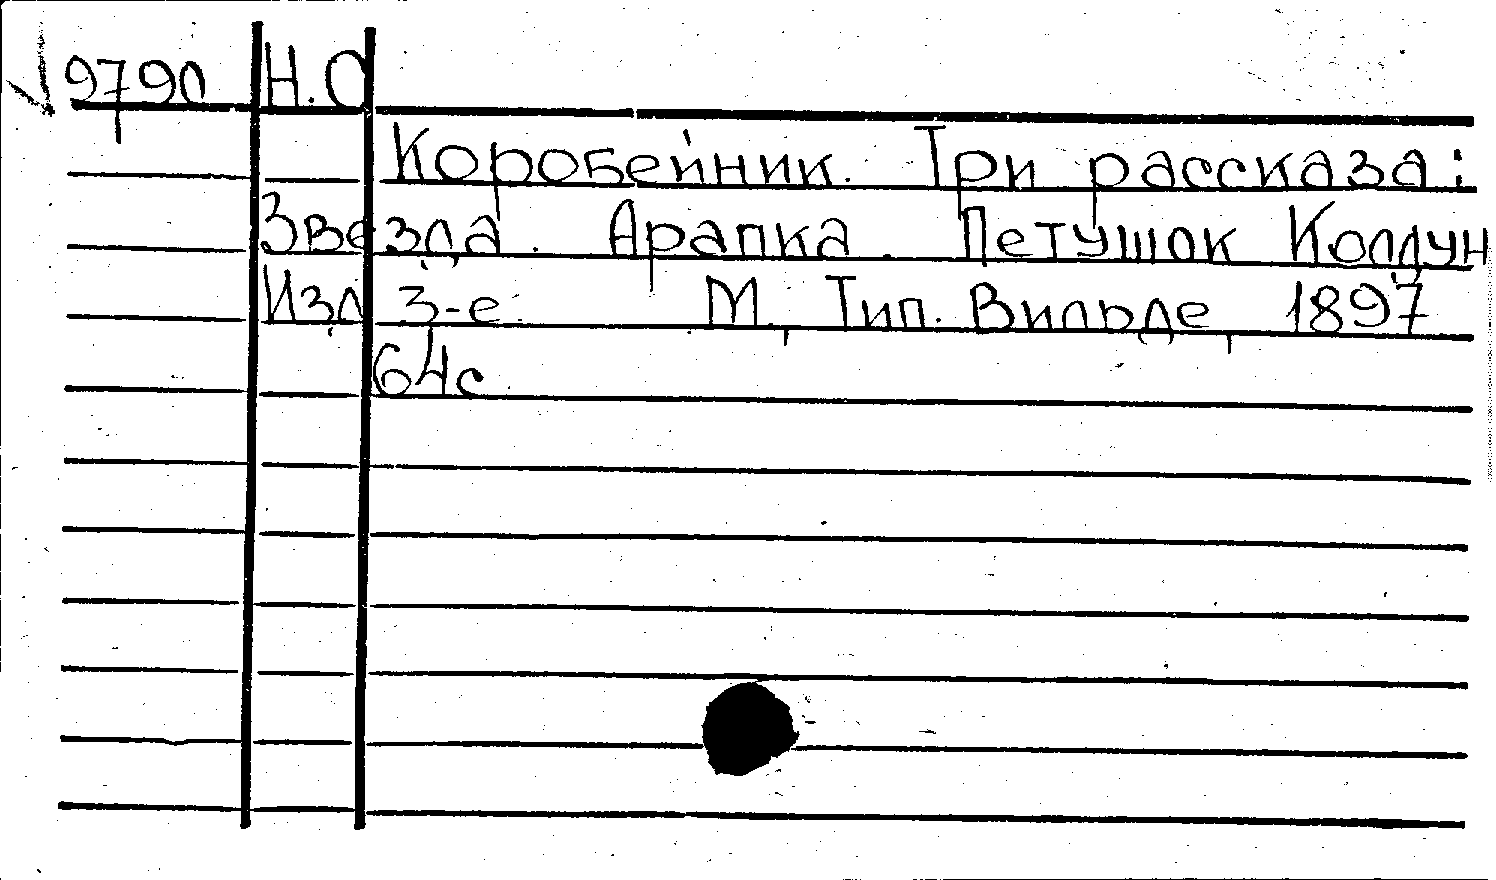 9790 Н.О
Коробейник. Три рассказа:
Звезда. Арапка. Петушок Колдун
Изд 3-е. М., Тип. Вильде, 1897
64с